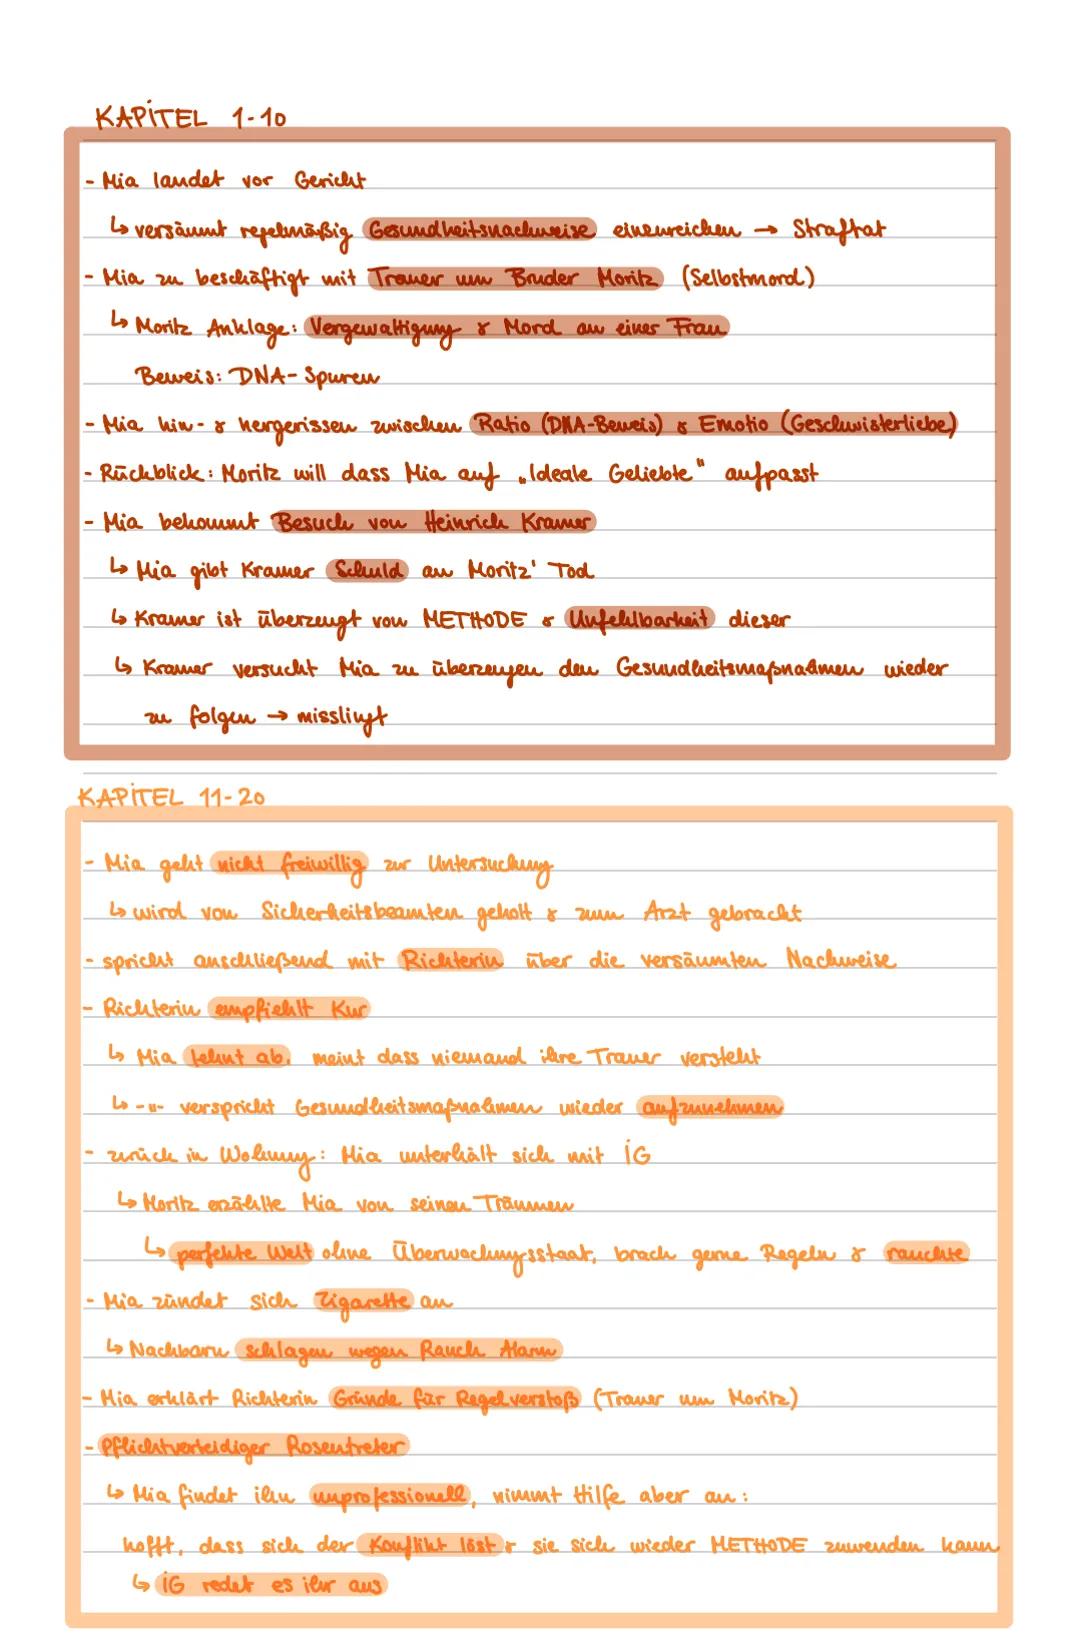 KAPİTEL 1-10
- Mia landet vor Gericht
↳ versäumt regelmäßig Gesundheitsnachweise einzureichen → Straftat
- Mia zu beschäftigt mit Trauer um Bruder Moritz (Selbstmord)
↳ Moritz Anklage: Vergewaltigung & Mord an einer Frau
Beweis: DNA-Spuren
- Mia hin- & hergerissen zwischen Ratio (DNA-Beweis) & Emotio (Geschwisterliebe)
- Rückblick: Moritz will dass Mia auf „Ideale Geliebte" aufpasst
- Mia bekommt Besuch von Heinrich Kramer
↳ Mia gibt Kramer Schuld an Moritz' Tod
↳ Kramer ist überzeugt von METHODE & Unfehlbarkeit dieser
↳ Kramer versucht Mia zu überzeugen den Gesundheitsmaßnahmen wieder
zu folgen → misslingt
KAPİTEL 11-20
- Mia geht nicht freiwillig zur Untersuchung
↳ wird von Sicherheitsbeamten geholt & zum Arzt gebracht
- spricht anschließend mit Richterin über die versäumten Nachweise
- Richterin empfiehlt Kur
↳ Mia lehnt ab, meint dass niemand ihre Trauer versteht
↳ -"- verspricht Gesundheitsmaßnahmen wieder aufzunehmen
- zurück in Wohnung: Mia unterhält sich mit İG
↳ Moritz erzählte Mia von seinen Träumen
↳ perfekte Welt ohne Überwachungsstaat, brach gerne Regeln & rauchte
- Mia zündet sich Zigarette an
↳ Nachbarn schlagen wegen Rauch Alarm
- Mia erklärt Richterin Gründe für Regelverstoß (Trauer um Moritz)
- Pflichtverteidiger Rosentreter
↳ Mia findet ihn unprofessionell, nimmt Hilfe aber an:
hofft, dass sich der Konflikt löst & sie sich wieder METHODE zuwenden kann
↳ İG redet es ihr aus